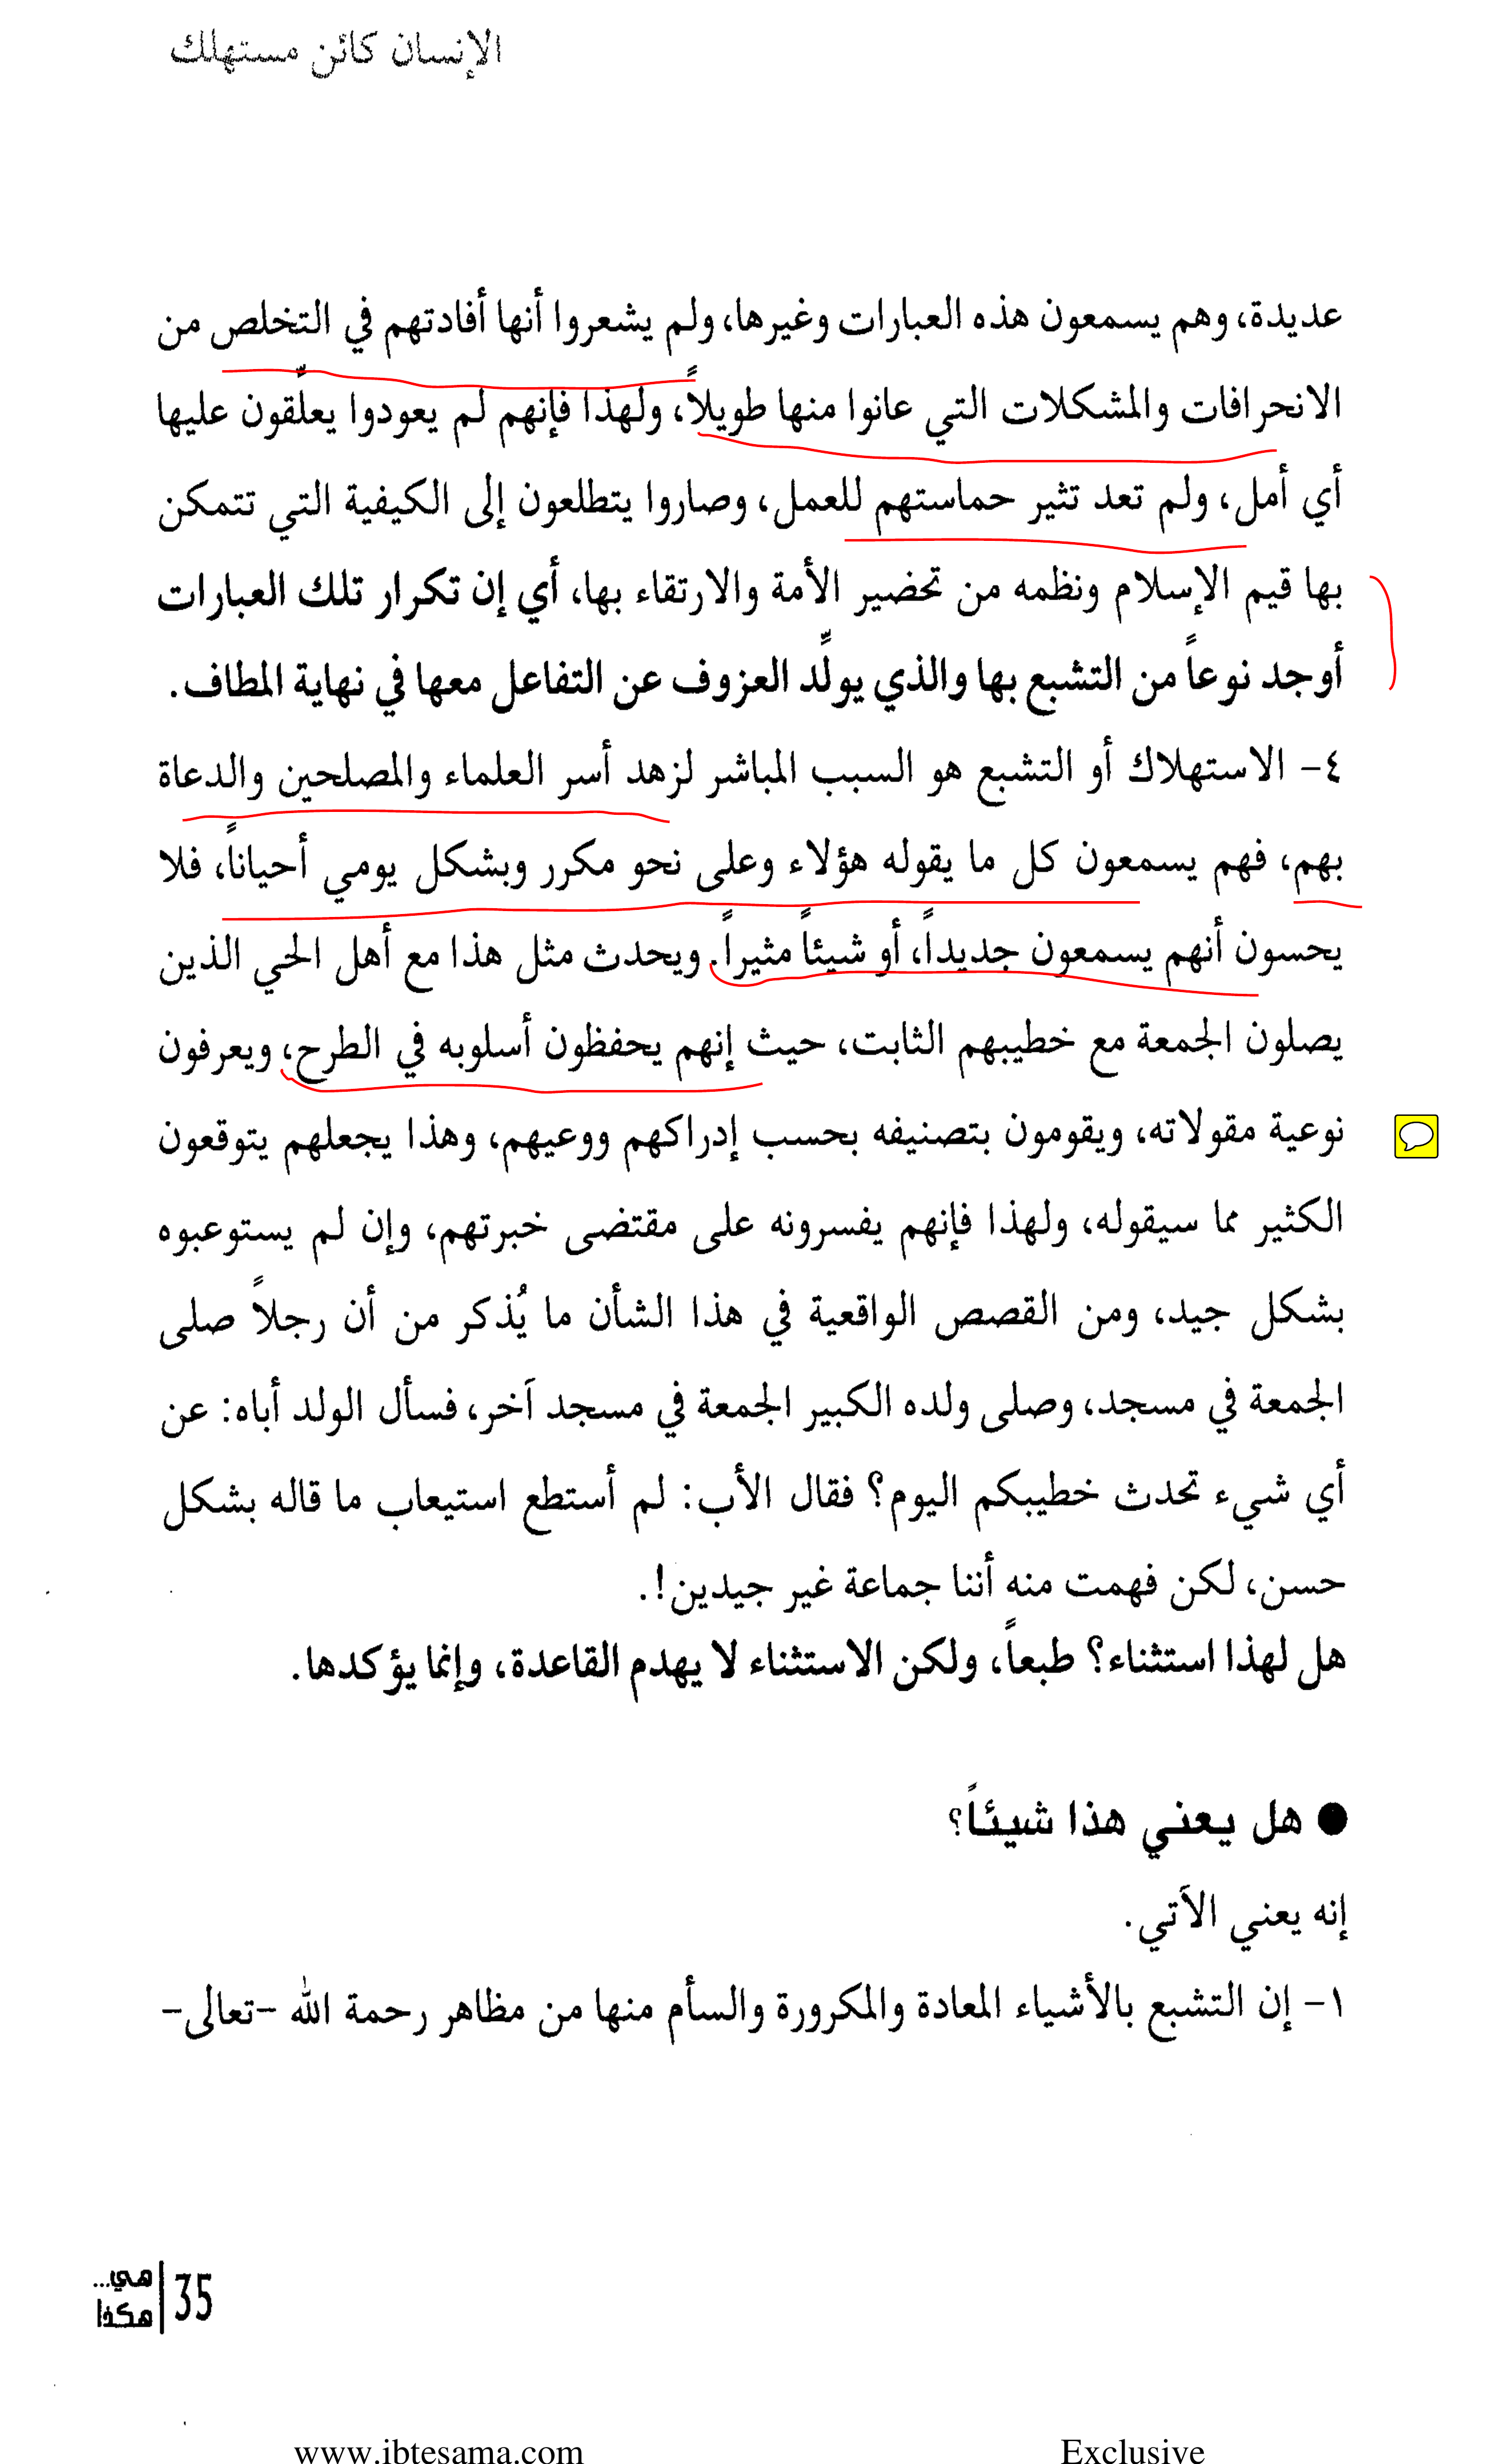 الإنسان كائن مستهلك
عديدة، وهم يسمعون هذه العبارات وغيرها، ولم يشعروا أنها أفادتهم في التخلص من
الانحرافات والمشكلات التي عانوا منها طويلاً، ولهذا فإنهم لم يعودوا يعلّقون عليها
أي أمل، ولم تعد تثير حماستهم للعمل، وصاروا يتطلعون إلى الكيفية التي تتمكن
بها قيم الإسلام ونظمه من تحضير الأمة والارتقاء بها، أي إن تكرار تلك العبارات
أوجد نوعاً من التشبع بها والذي يولِّد العزوف عن التفاعل معها في نهاية المطاف.
٤- الاستهلاك أو التشبع هو السبب المباشر لزهد أسر العلماء والمصلحين والدعاة
بهم، فهم يسمعون كل ما يقوله هؤلاء وعلى نحو مكرر وبشكل يومي أحياناً، فلا
يحسون أنهم يسمعون جديداً، أو شيئاً مثيراً. ويحدث مثل هذا مع أهل الحي الذين
يصلون الجمعة مع خطيبهم الثابت، حيث إنهم يحفظون أسلوبه في الطرح، ويعرفون
نوعية مقولاته، ويقومون بتصنيفه بحسب إدراكهم ووعيهم، وهذا يجعلهم يتوقعون
الكثير مما سيقوله، ولهذا فإنهم يفسرونه على مقتضى خبرتهم، وإن لم يستوعبوه
بشكل جيد، ومن القصص الواقعية في هذا الشأن ما يُذكر من أن رجلاً صلى
الجمعة في مسجد، وصلى ولده الكبير الجمعة في مسجد آخر، فسأل الولد أباه: عن
أي شيء تحدث خطيبكم اليوم؟ فقال الأب: لم أستطع استيعاب ما قاله بشكل
حسن، لكن فهمت منه أننا جماعة غير جيدين!.
هل لهذا استثناء؟ طبعاً، ولكن الاستثناء لا يهدم القاعدة، وإنما يؤكدها.
● هل يعني هذا شيئاً؟
إنه يعني الآتي.
١- إن التشبع بالأشياء المعادة والمكرورة والسأم منها من مظاهر رحمة الله -تعالى-
35
هي...
هكذا
www.ibtesama.com
Exclusive